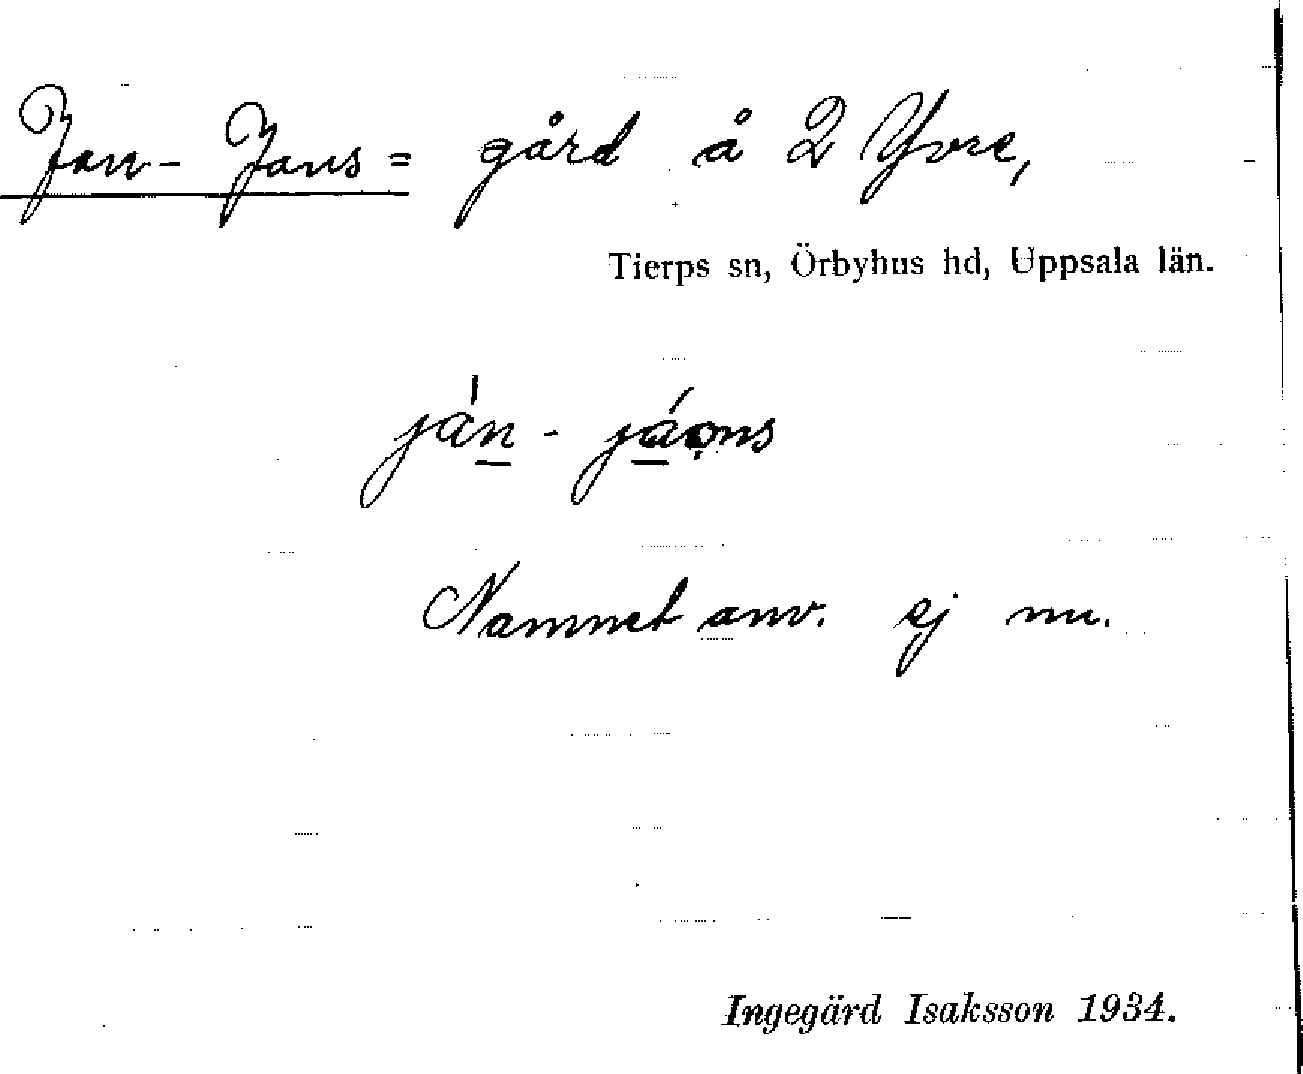 Jan-Jans= gård å 2 Yvre,
Tierps sn, Örbyhus hd, Uppsala län.
ján - jáọns
Namnet anv. ej nu.
Ingegärd Isaksson 1934.